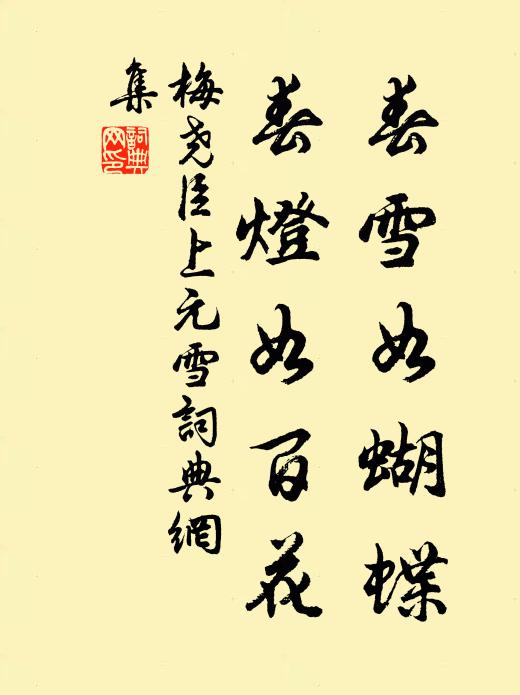 春雪如蝴蝶
春燈如百花
梅尧臣上元雪詞典網
集
詞典
网印